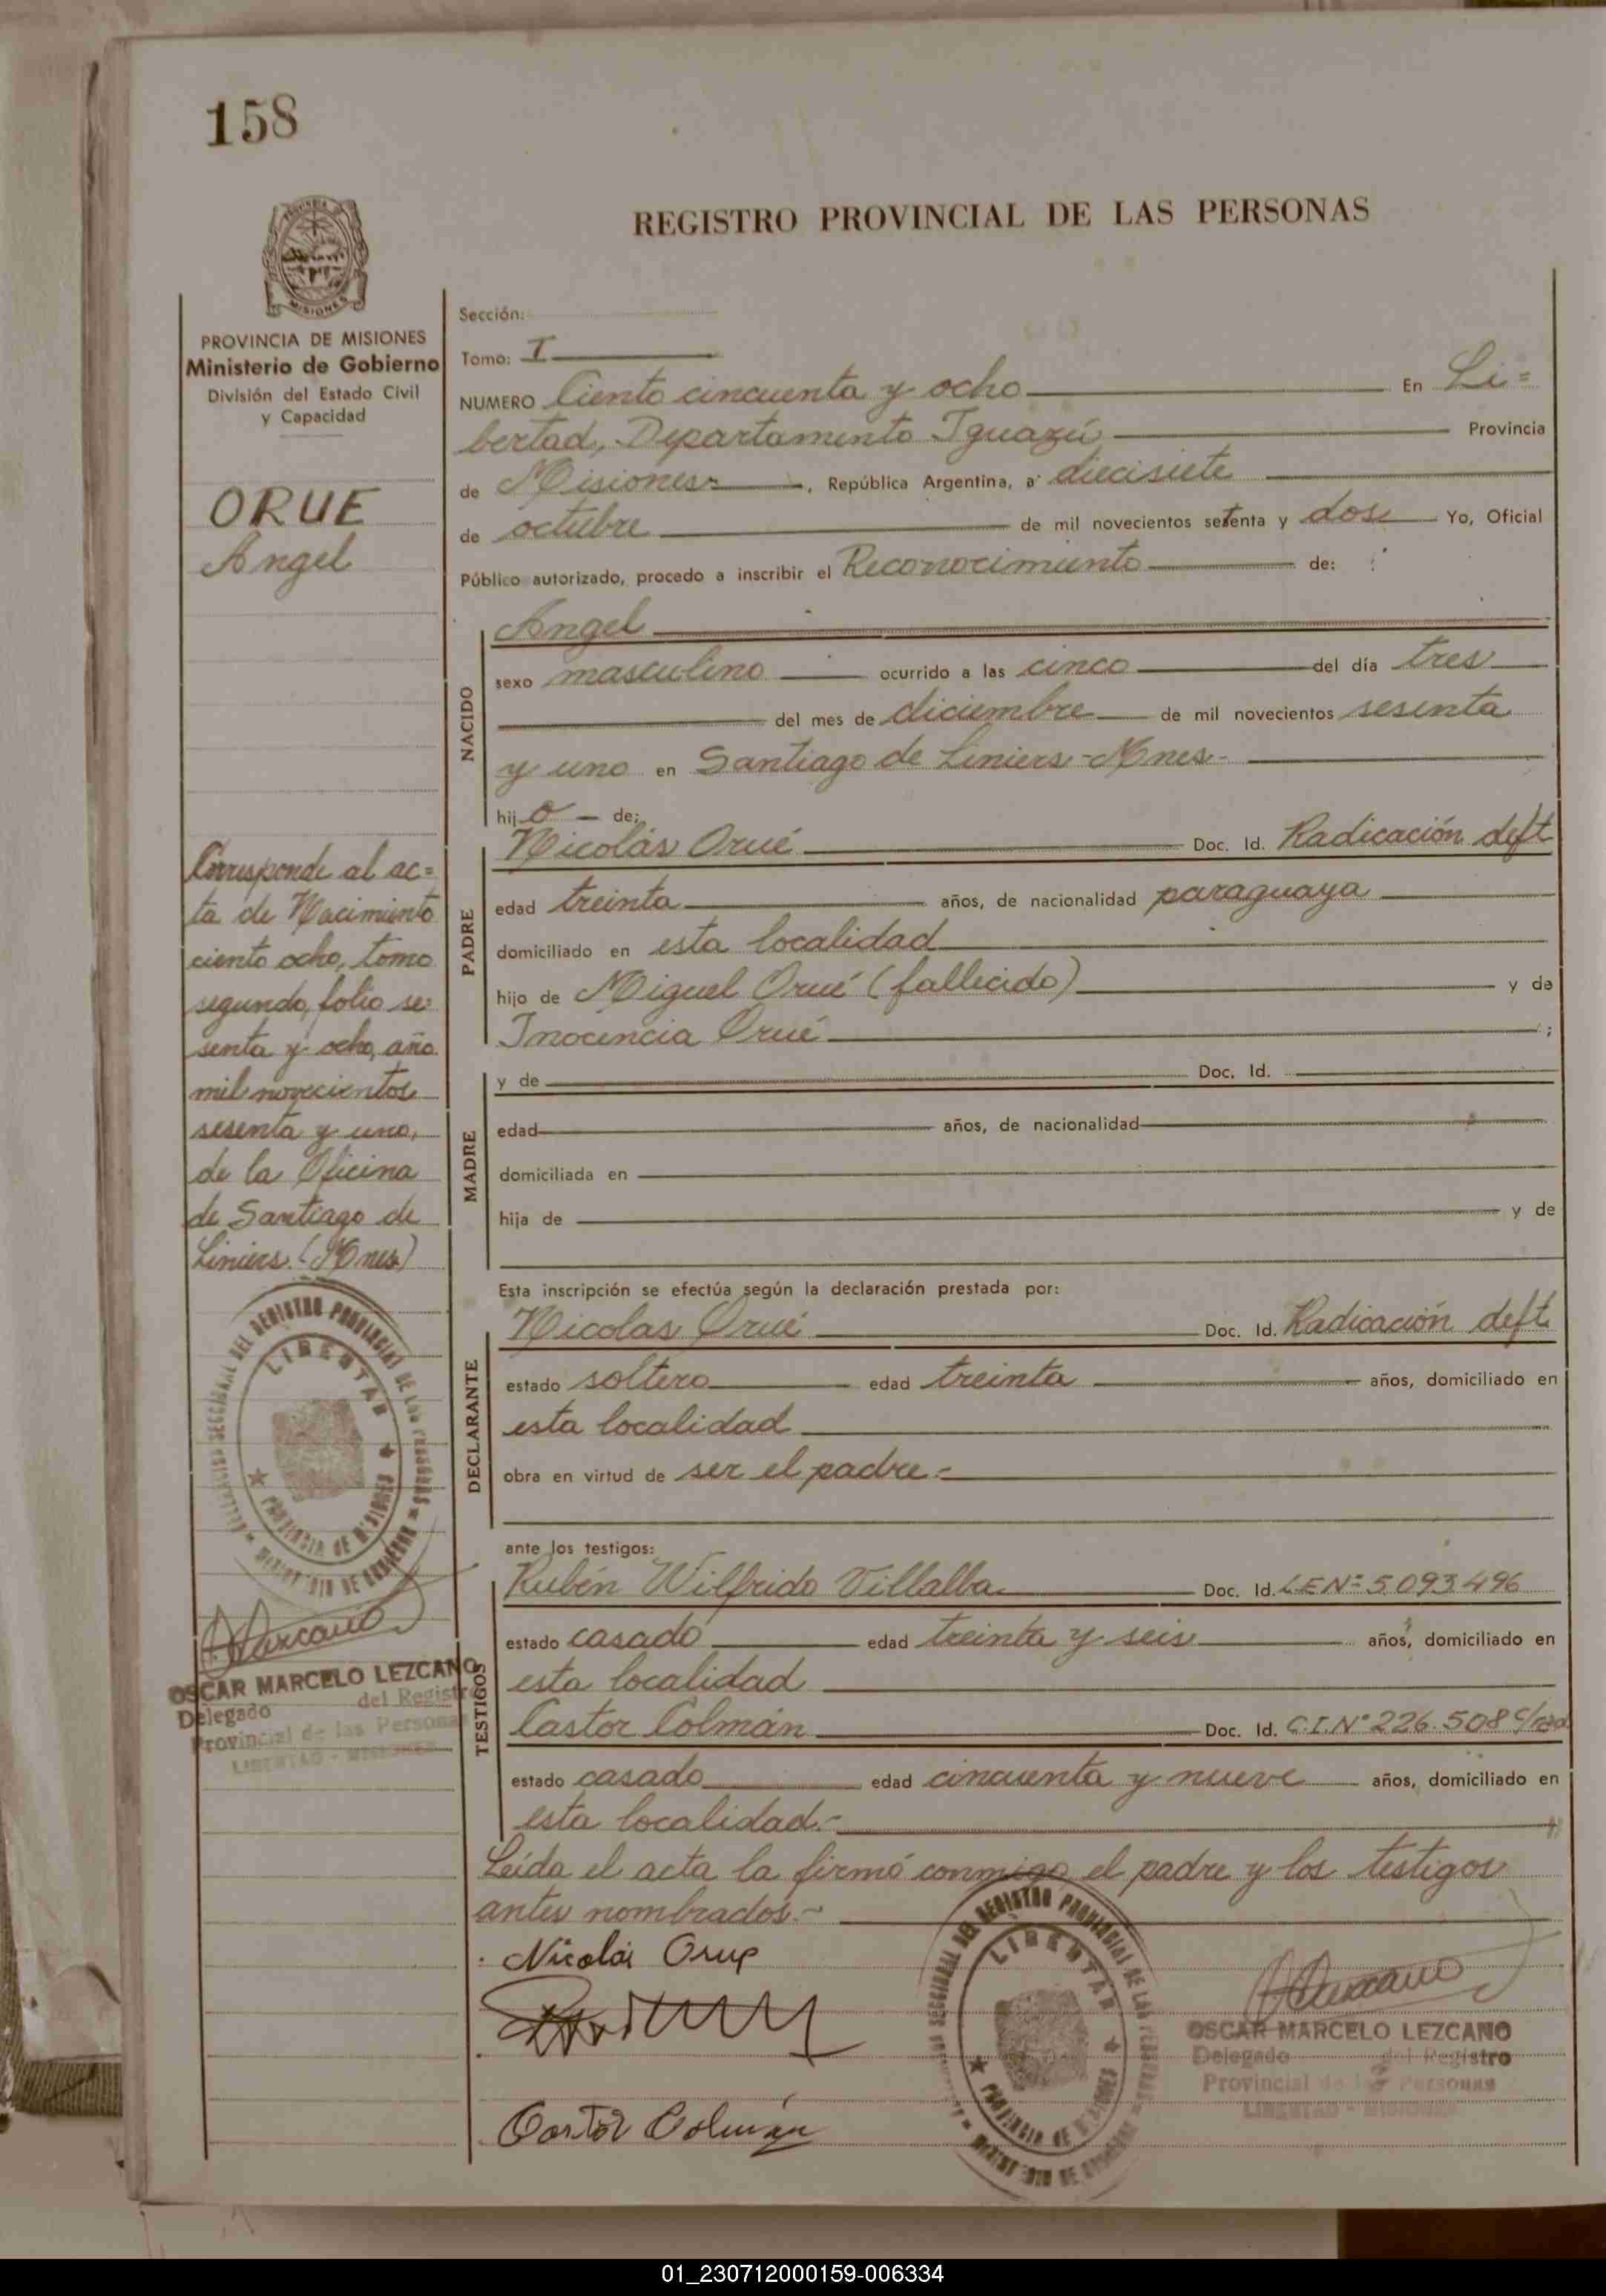 158
REGISTRO PROVINCIAL DE LAS PERSONAS
MISIONES
PROVINCIA DE MISIONES
Ministerio de Gobierno
División del Estado Civil
y Capacidad
ORUE
Angel
Corresponde al ac=
ta de Nacimiento
ciento ocho, tomo
segundo, folio se=
senta y ocho, año
mil novecientos
sesenta y uno,
de la Oficina
de Santiago de
Liniers. (Mnes)
LIBERTAD
PROVINCIA DE MISIONES
OSCAR MARCELO LEZCANO
Delegado del Registro
Provincial de las Personas
LIBERTAD - MISIONES
Sección:
Tomo: I
NUMERO Ciento cincuenta y ocho En Li=
bertad, Departamento Iguazú Provincia
de Misiones , República Argentina, a diecisiete
de octubre de mil novecientos setenta y dos Yo, Oficial
Público autorizado, procedo a inscribir el Reconocimiento de:
NACIDO
Angel
sexo masculino ocurrido a las cinco del día tres
del mes de diciembre de mil novecientos sesenta
y uno en Santiago de Liniers - Mnes-
hijo de:
PADRE
Nicolás Orué Doc. Id. Radicación deft
edad treinta años, de nacionalidad paraguaya
domiciliado en esta localidad
hijo de Miguel Orué (fallecido) y de
Inocencia Orué ;
MADRE
y de Doc. Id.
edad años, de nacionalidad
domiciliada en
hija de y de
Esta inscripción se efectúa según la declaración prestada por:
DECLARANTE
Nicolas Orué Doc. Id. Radicación deft.
estado soltero edad treinta años, domiciliado en
esta localidad
obra en virtud de ser el padre.-
ante los testigos:
TESTIGOS
Rubén Wilfrido Villalba Doc. Id. LE Nº 5.093.496
estado casado edad treinta y seis años, domiciliado en
esta localidad
Castor Colmán Doc. Id. C.I. Nº 226.508
estado casado edad cincuenta y nueve años, domiciliado en
esta localidad.-
Leída el acta la firmó conmigo el padre y los testigos
antes nombrados.-
Nicolás Orue
Castor Colmán
LIBERTAD
PROVINCIA DE MISIONES
OSCAR MARCELO LEZCANO
Delegado del Registro
Provincial de las Personas
LIBERTAD - MISIONES
01_230712000159-006334